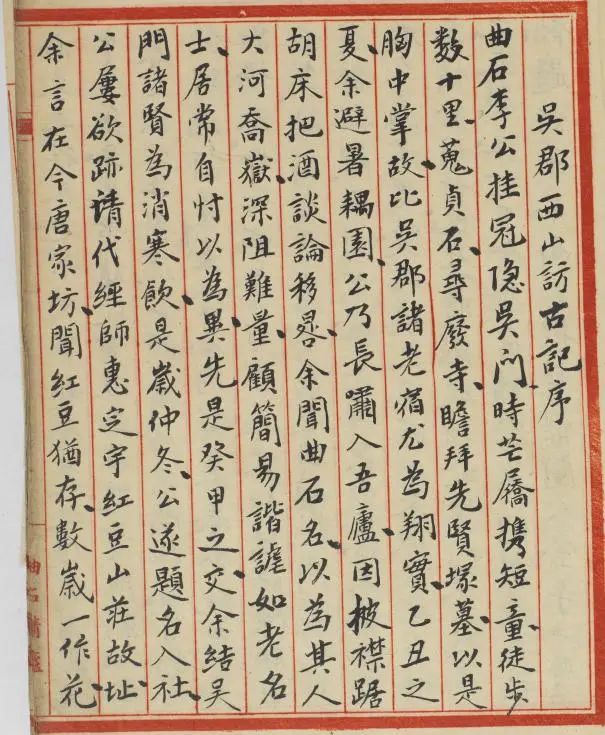 吳郡西山訪古記序
曲石李公挂冠隐吳门時芒屩携短童徒步
数十里蒐貞石尋廢寺瞻拜先賢塚墓以是
胸中掌故比吳郡諸老宿尤為翔實乙丑之
夏余避暑耦園公乃長嘯入吾廬因披襟踞
胡床把酒談論移晷余聞曲石名以為其人
大河喬嶽深阻難量顧簡易諧謔如老名
士居常自忖以為異先是癸甲之交余結吴
門諸賢為消寒飲是歲仲冬公遂題名入社
公屢欲跡请代經師惠定宇紅豆山莊故址
余言在今唐家坊聞紅豆猶存數歲一作花
曲石精廬